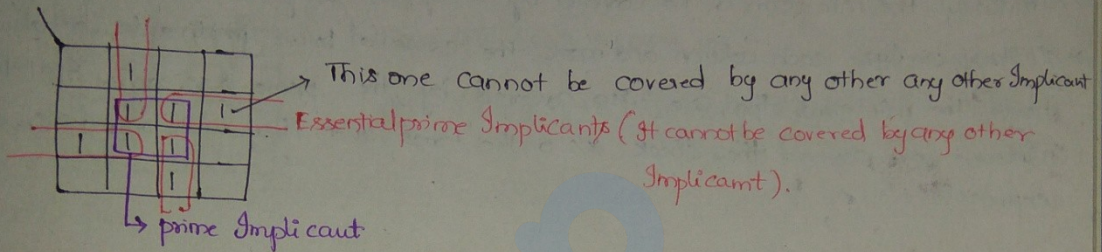 1
1 1 1
1 1 1
1
This one cannot be covered by any other any other Implicant
Essential prime Implicants (It cannot be covered by any other
Implicamt).
prime Implicaut